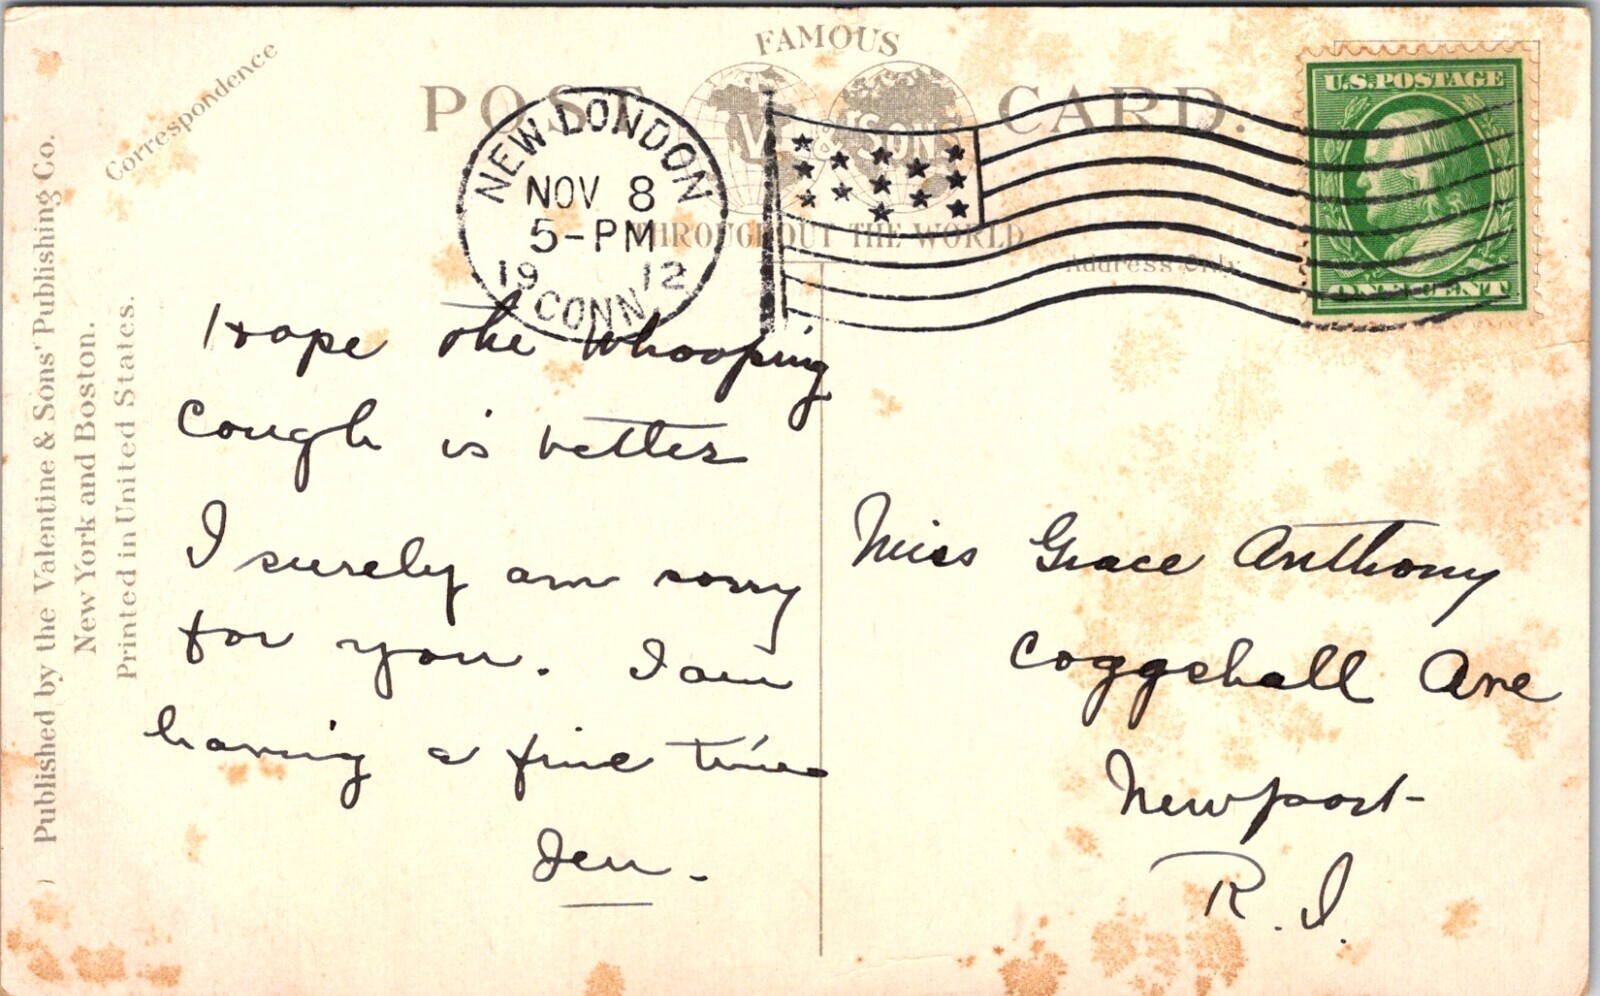 Published by the Valentine & Sons' Publishing Co.
New York and Boston.
Printed in United States.
Correspondence
FAMOUS
POST CARD.
V & SONS
THROUGHOUT THE WORLD
Address Only
NEW LONDON
NOV 8
5-PM
1912
CONN
U.S. POSTAGE
ONE CENT
Hope the whooping
cough is better
I surely am sorry
for you. I am
having a fine time
Jen.
Miss Grace Anthony
Coggshall Ave
Newport
R.I.